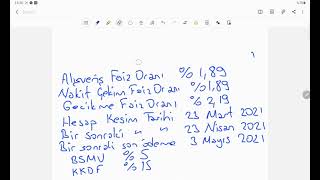 Alışveriş Faiz Oranı % 1,89
Nakit Çekim Faiz Oranı % 1,89
Gecikme Faiz Oranı % 2,19
Hesap Kesim Tarihi 23 Mart 2021
Bir sonraki " " 23 Nisan 2021
Bir sonraki son ödeme 3 Mayıs 2021
BSMV % 5
KKDF % 15